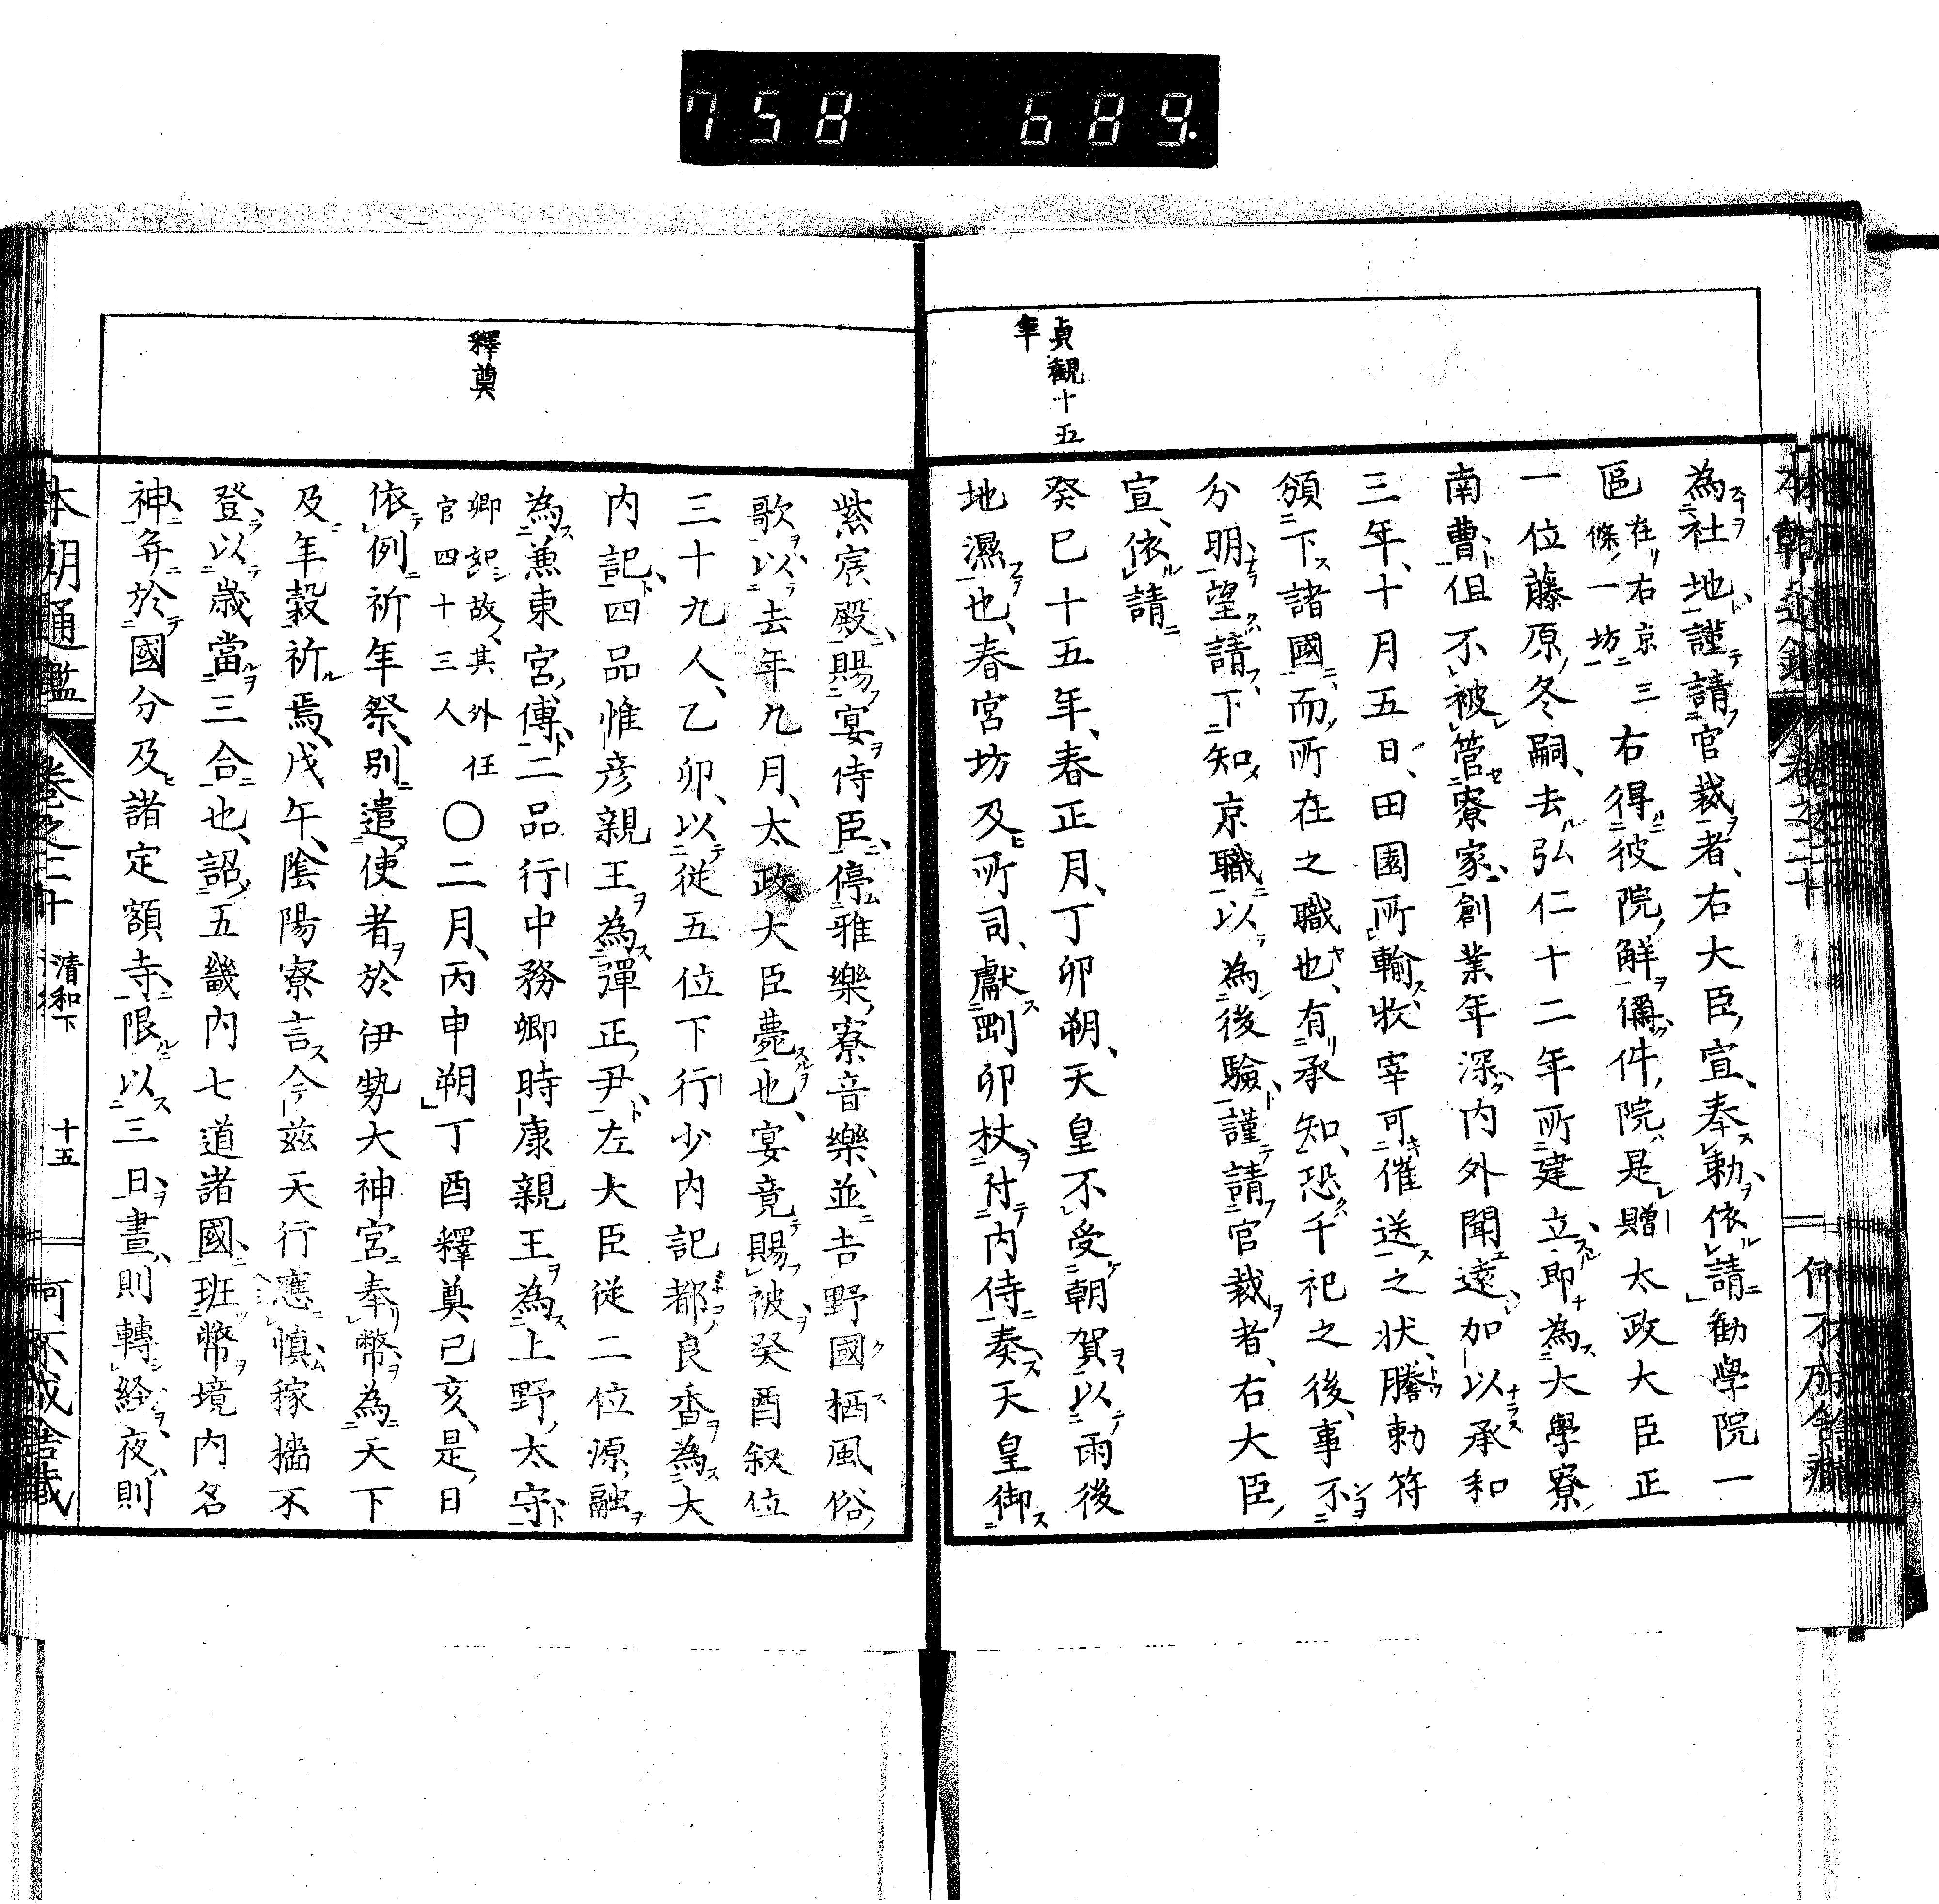 758 689.
貞観十五
年
為社地謹請官裁者、右大臣宣、奉勅依請勧學院一
區在右京三條一坊右得彼院解偁件院是贈太政大臣正
一位藤原冬嗣、去弘仁十二年所建立即為大學寮
南曹但不被管寮家創業年深内外聞遠加以承和
三年、十月五日、田園所輸、收宰可催送之状、騰勅符
頒下諸國、而所在之職也、有承知、恐千祀之後、事不
分明、望請下知京職以為後驗謹請官裁者、右大臣
宣、依請
癸巳十五年、春正月、丁卯朔、天皇不受朝賀以雨後
地濕也、春宮坊及所司、獻剛卯杖、付内侍奏天皇御
釋奠
紫宸殿、賜宴侍臣、停雅樂寮音樂、並吉野國栖風俗
歌以去年九月、太政大臣薨也、宴竟賜被癸酉叙位
三十九人、乙卯、以從五位下行少内記都良香為大
内記四品惟彦親王為彈正尹左大臣從二位源融
為兼東宮傅二品行中務卿時康親王為上野太守
卿如故其外任官四十三人〇二月、丙申朔丁酉釋奠己亥、是日
依例祈年祭、別遣使者於伊勢大神宮奉幣為天下
及年穀祈焉、戊午、陰陽寮言今茲天行應慎稼穡不
登、以歳當三合也、詔五畿内七道諸國班幣境内名
神并於國分及諸定額寺限以三日、晝則轉経夜則
本朝通鑑 卷之二十 清和下 十五